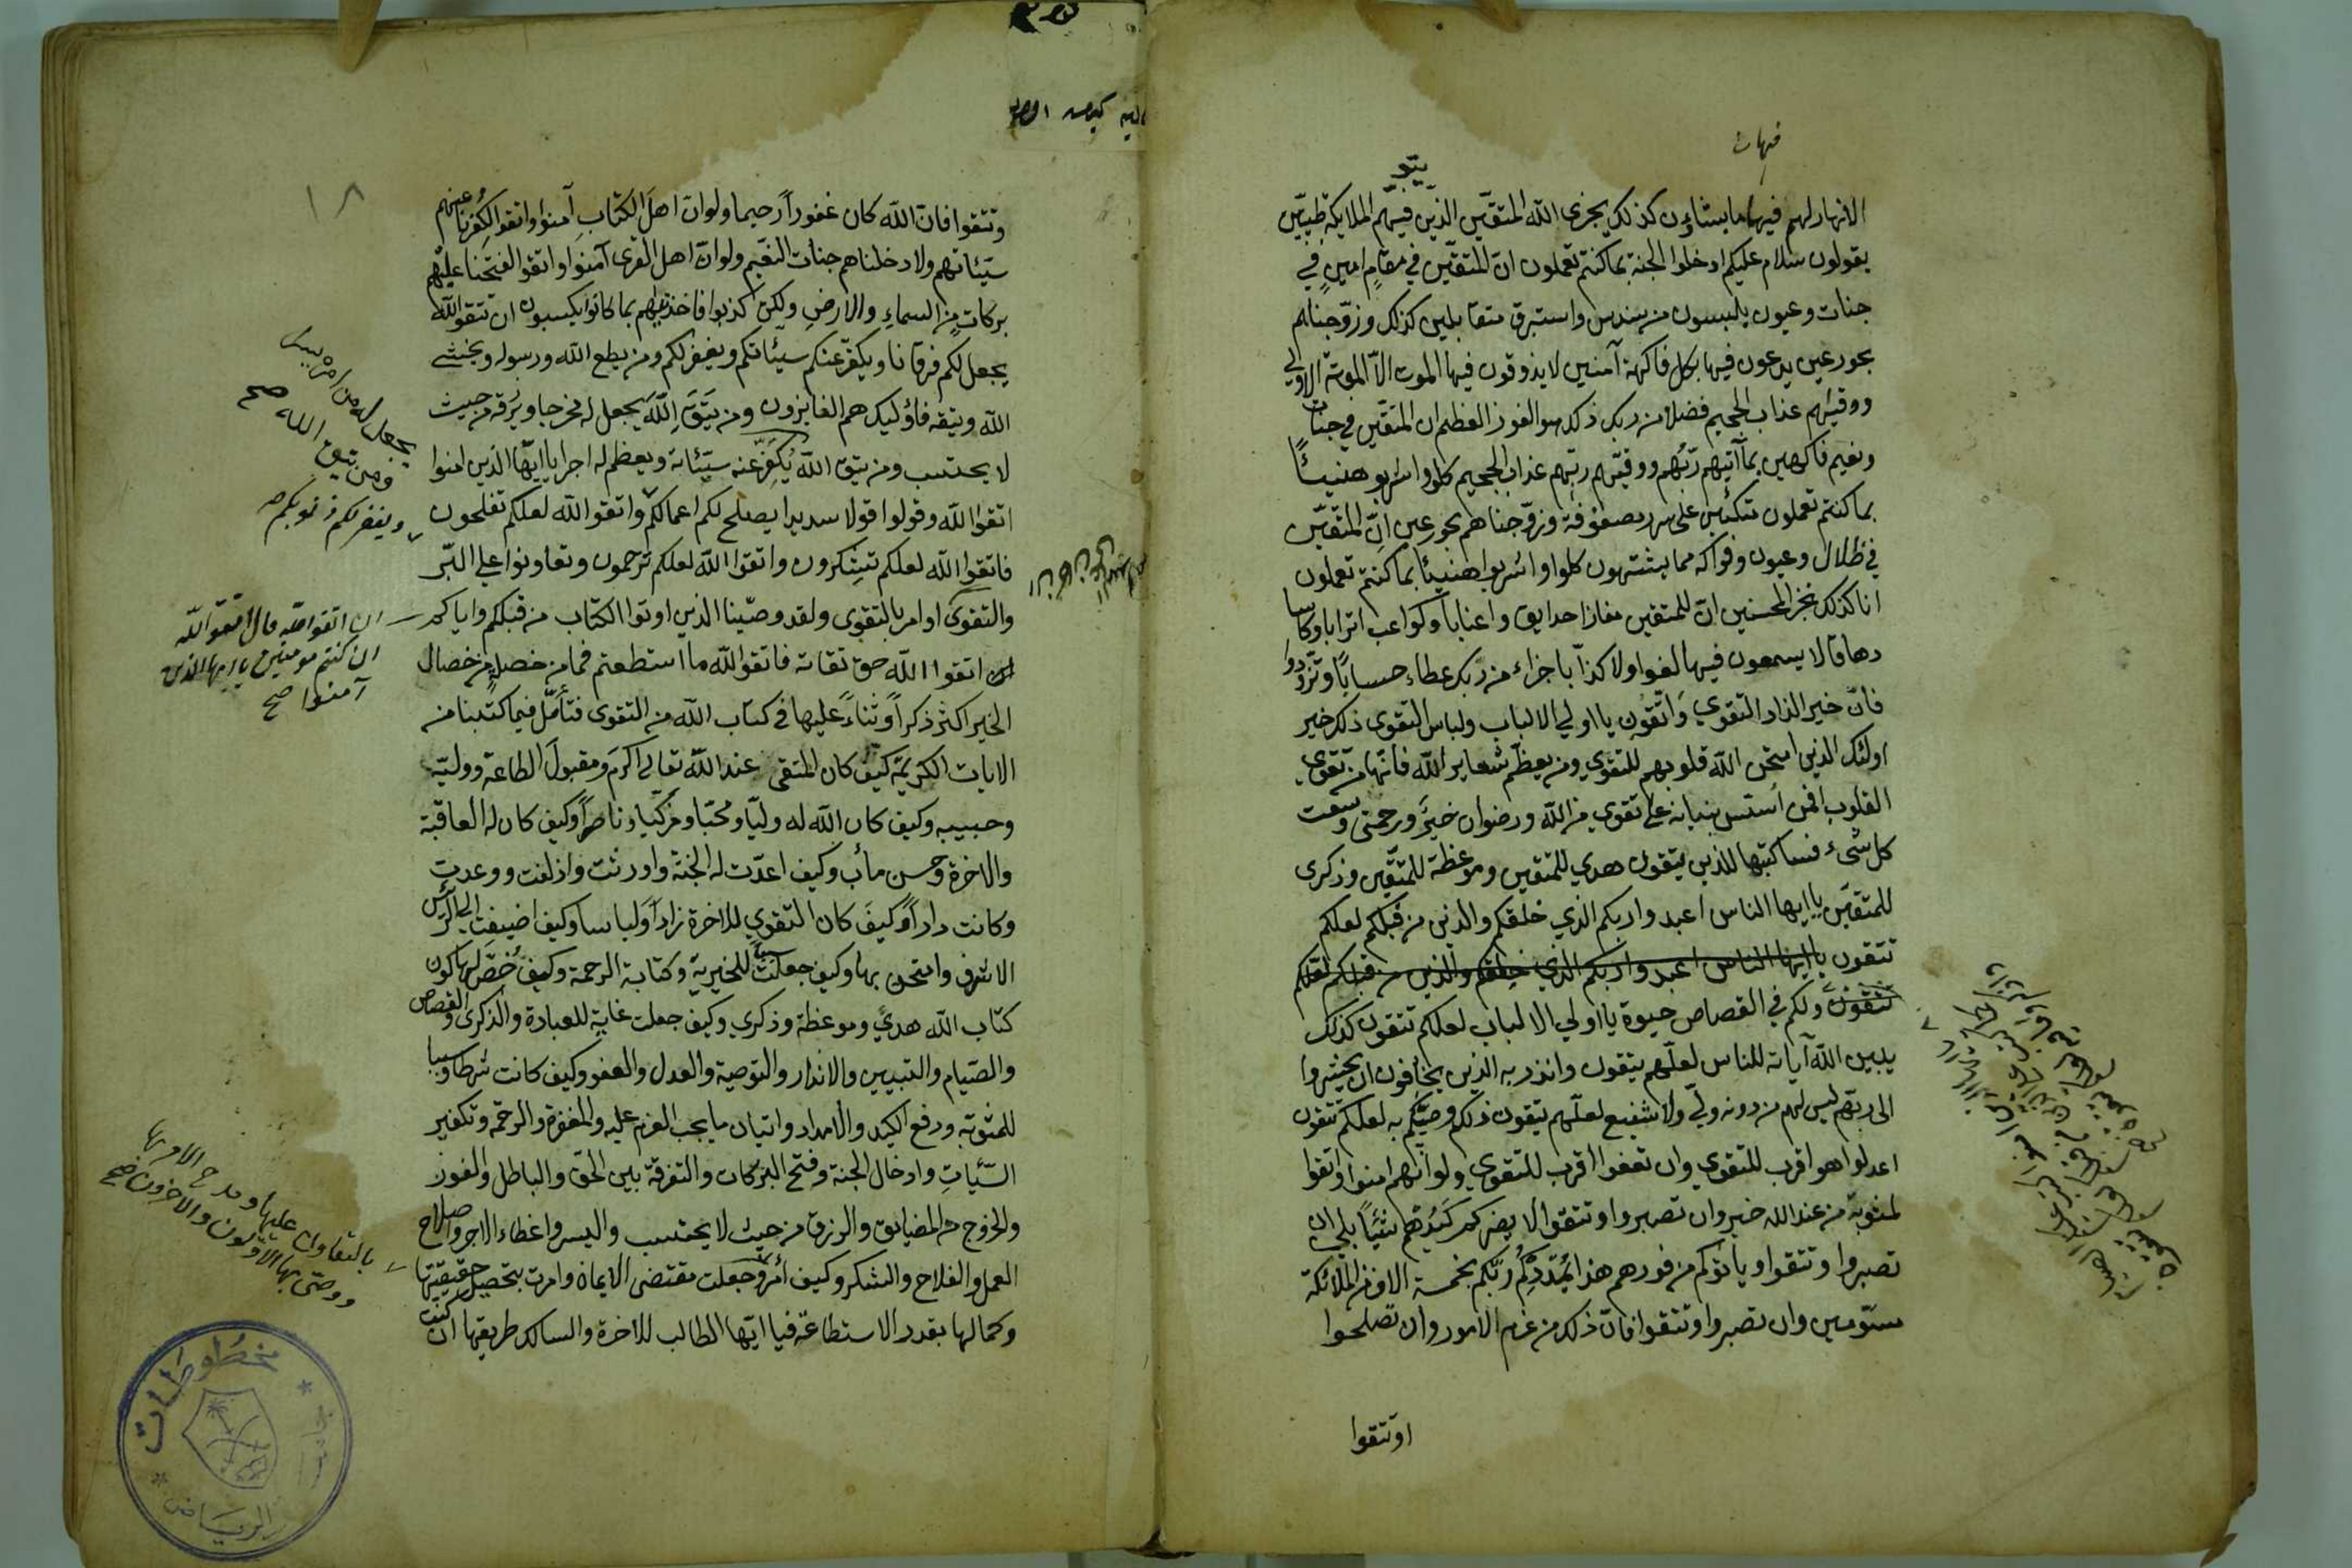 فيها
يتو
الانهار لهم فيها ما يشاؤن كذلك يجزى الله المتقين الذين فيهم الملايكة طيبين
يقولون سلام عليكم ادخلوا الجنة بما كنتم تعملون ان للمتقين في مقام امين في
جنات وعيون يلبسون من سندس واستبرق متقابلين كذلك وزوجناهم
بحور عين يدعون فيها بكل فاكهة آمنين لا يذوقون فيها الموت الا الموتة الاولي
ووقيهم عذاب الجحيم فضلا من ربك ذلك هو الفوز العظيم ان المتقين في جنات
ونعيم فاكهين بما آتيهم ربهم ووقيهم ربهم عذاب الجحيم كلوا واشربو هنيئاً
بما كنتم تعملون متكئين على سرر مصفوفة وزوجناهم بحور عين ان المتقين
في ظلال وعيون وفواكه مما يشتهون كلوا واشربوا هنيئا بما كنتم تعملون
انا كذلك نجز المحسنين ان للمتقين مفازا حدايق واعنابا وكواعب اترابا وكاسا
دهاقا لا يسمعون فيها لغوا ولا كذابا جزاء من ربك عطاء حسابا وتزودوا
فان خير الزاد التقوي واتقون يا اولي الالباب ولباس التقوى ذلك خير
اولئك الذين امتحن الله قلوبهم للتقوي ومن يعظم شعاير الله فانها من تقوي
القلوب افمن اسس بنيانه علي تقوي من الله ورضوان خير ورحمتي وسعت
كل شيء فساكتبها للذين يتقون هدي للمتقين وموعظة للمتقين وذكرى
للمتقين يا ايها الناس اعبدوا ربكم الذي خلقكم والذين من قبلكم لعلكم
تتقون يا ايها الناس اعبدوا ربكم الذي خلقكم والذين من قبلكم لعلكم
تتقون ولكم في القصاص حيوة يا اولي الالباب لعلكم تتقون كذلك
يبين الله آياته للناس لعلهم يتقون وانذر به الذين يخافون ان يحشروا
الى ربهم ليس لهم من دونه ولي ولا شفيع لعلهم يتقون ذلكم وصيكم به لعلكم تتقون
اعدلوا هو اقرب للتقوي وان تعفوا اقرب للتقوي ولو انهم امنوا واتقوا
لمثوبة من عند الله خير وان تصبروا وتتقوا لا يضركم كيدهم شيئا بلي ان
تصبروا وتتقوا وياتوكم من فورهم هذا يمددكم ربكم بخمسة الاف من الملائكة
مسومين وان تصبروا وتتقوا فان ذلك من عزم الامور وان تصلحوا
وتتقوا
١٨
وتتقوا فان الله كان غفوراً رحيما ولو ان اهل الكتاب آمنوا واتقوا لكفرنا عنهم
سيئاتهم ولادخلناهم جنات النعيم ولو ان اهل القرى آمنوا واتقوا لفتحنا عليهم
بركات من السماء والارض ولكن كذبوا فاخذناهم بما كانوا يكسبون ان تتقوا الله
يجعل لكم فرقانا ويكفر عنكم سيئاتكم ويغفر لكم ومن يطع الله ورسوله ويخشي
الله ويتقه فاؤليك هم الفايزون ومن يتق الله يجعل له مخرجا ويرزقه من حيث
لا يحتسب ومن يتق الله يكفر عنه سيئاته ويعظم له اجرا يا ايها الذين امنوا
اتقوا الله وقولوا قولا سديدا يصلح لكم اعمالكم واتقوا الله لعلكم تفلحون
فاتقوا الله لعلكم تشكرون واتقوا الله لعلكم ترحمون وتعاونوا علي البر
والتقوى او امر بالتقوى ولقد وصينا الذين اوتوا الكتاب من قبلكم واياكم
ان اتقوا الله حق تقاته فاتقوا الله ما استطعتم فما من خصلة من خصال
الخير اكثر ذكراً وثناءً عليها في كتاب الله من التقوى فتأمل فيما كتبنا من
الايات الكريمة كيف كان المتقى عند الله تعالى اكرم ومقبول الطاعة ووليه
وحبيبه وكيف كان الله له وليا ومحبا ومزكيا وناصراً وكيف كان له العاقبة
والاخرة وحسن مآب وكيف اعدت له الجنة واورثت وازلفت ووعدت
وكانت داراً وكيف كان التقوي للاخرة زاداً ولباسا وكيف اضيفت الي الرئيس
الاشرف وامتحن بها وكيف جعلت سببا للخيرية وكتابة الرحمة وكيف خص لها كون
كتاب الله هدي وموعظة وذكري وكيف جعلت غاية للعبادة والذكرى والقصاص
والصيام والتبيين والانذار والتوصية والعدل والعفو وكيف كانت شرطا وسببا
للمثوبة ودفع الكيد والامداد واتيان ما يجب العزم عليه والمغفرة والرحمة وتكفير
السيئات وادخال الجنة وفتح البركات والتفرقة بين الحق والباطل والفوز
والخروج من المضايق والرزق من حيث لا يحتسب واليسر واعطاء الاجر واصلاح
العمل والفلاح والشكر وكيف امر وجعلت مقتضى الايمان وامرت بتحصيل حقيقتها
وكمالها بقدر الاستطاعة فيا ايها الطالب للاخرة والسالك طريقها ان كنت
يجعل له من امره يسرا
ومن يتق الله صح
ويغفر لكم ذنوبكم صح
ان اتقوا الله قال اتقوا الله
ان كنتم مومنين يا ايها الذين
آمنوا صح
بالتعاون عليها ومدح الامر بها
ووصي بها الاولون والاخرون صح
مخطوطات
جامعة
الرياض